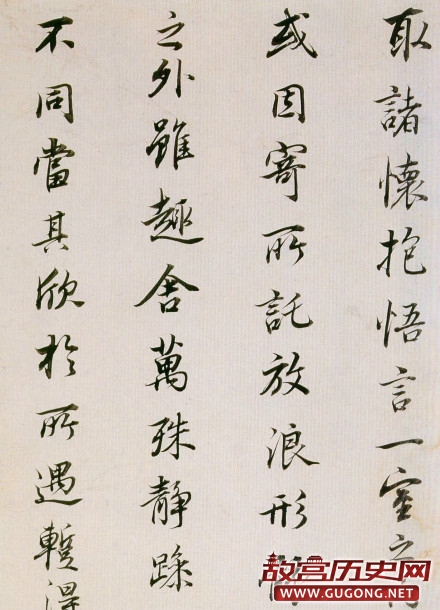 取諸懷抱悟言一室之内
或因寄所託放浪形骸
之外雖趣舍萬殊靜躁
不同當其欣於所遇暫得
故宫历史网
WWW.GUGONG.NET